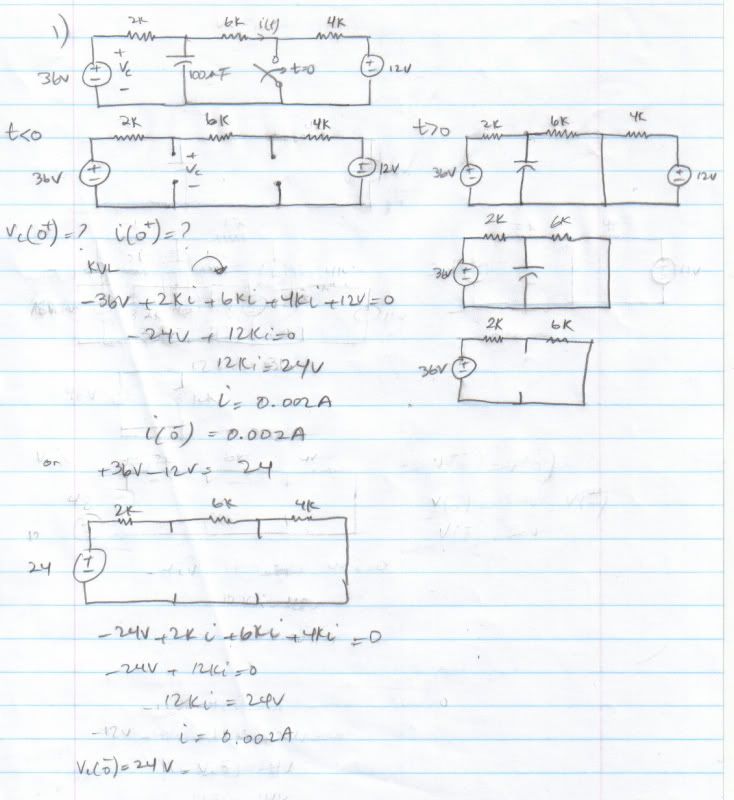 1)
2K 6K i(t) 4K
36V + Vc - 100μF t=0 12V
t<0
2K 6K 4K
36V + Vc - 12V
t>0
2K 6K 4K
36V 12V
Vc(0+)=? i(0+)=?
2K 6K
36V
KVL
-36V+2Ki+6Ki+4Ki+12V=0
-24V+12Ki=0
12Ki=24V
i=0.002A
i(0-)=0.002A
2K 6K
36V
or +36V-12V= 24
2K 6K 4K
24
-24V+2Ki+6Ki+4Ki=0
-24V+12Ki=0
12Ki=24V
i=0.002A
Vc(0-)=24V